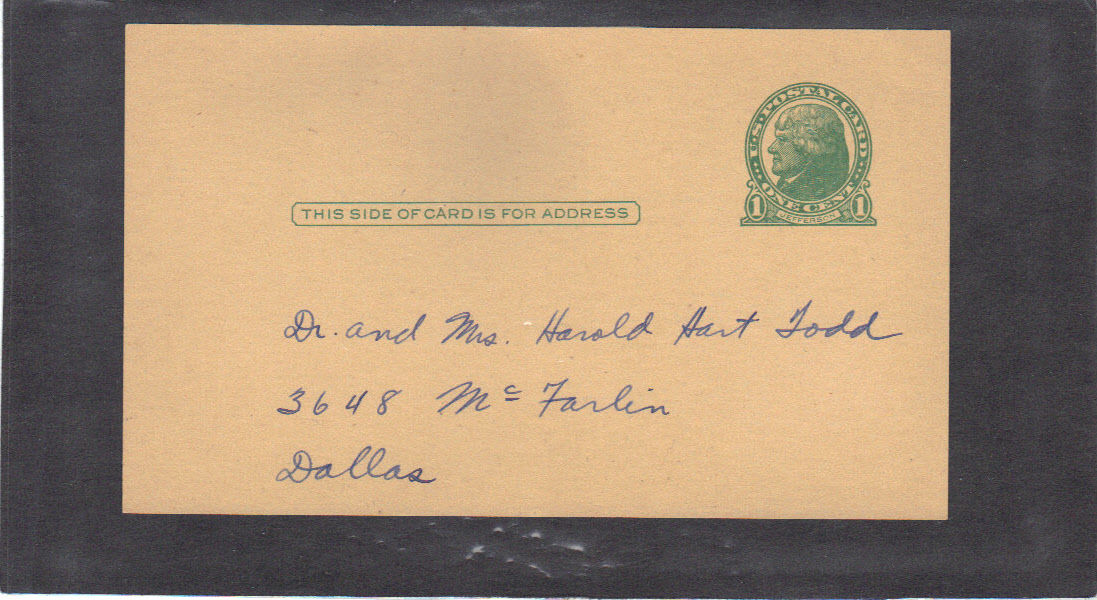 U.S. POSTAL CARD
ONE CENT
1 JEFFERSON 1
THIS SIDE OF CARD IS FOR ADDRESS
Dr. and Mrs. Harold Hart Todd
3648 Mc Farlin
Dallas